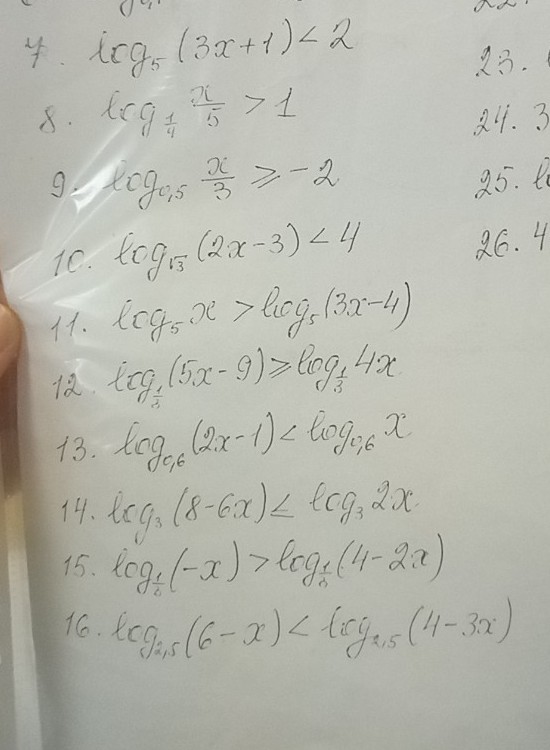 7. log₅ (3x+1) < 2
23.
8. log_{1/4} x/5 > 1
24. 3
9. log₀,₅ x/3 ⩾ -2
25. l
10. log_{√3} (2x-3) < 4
26. 4
11. log₅ x > log₅ (3x-4)
12. log_{1/3} (5x-9) ⩾ log_{1/3} 4x
13. log₀,₆ (2x-1) < log₀,₆ x
14. log₃ (8-6x) ≤ log₃ 2x
15. log (-x) > log (4-2x)
16. log₂,₅ (6-x) < log₂,₅ (4-3x)